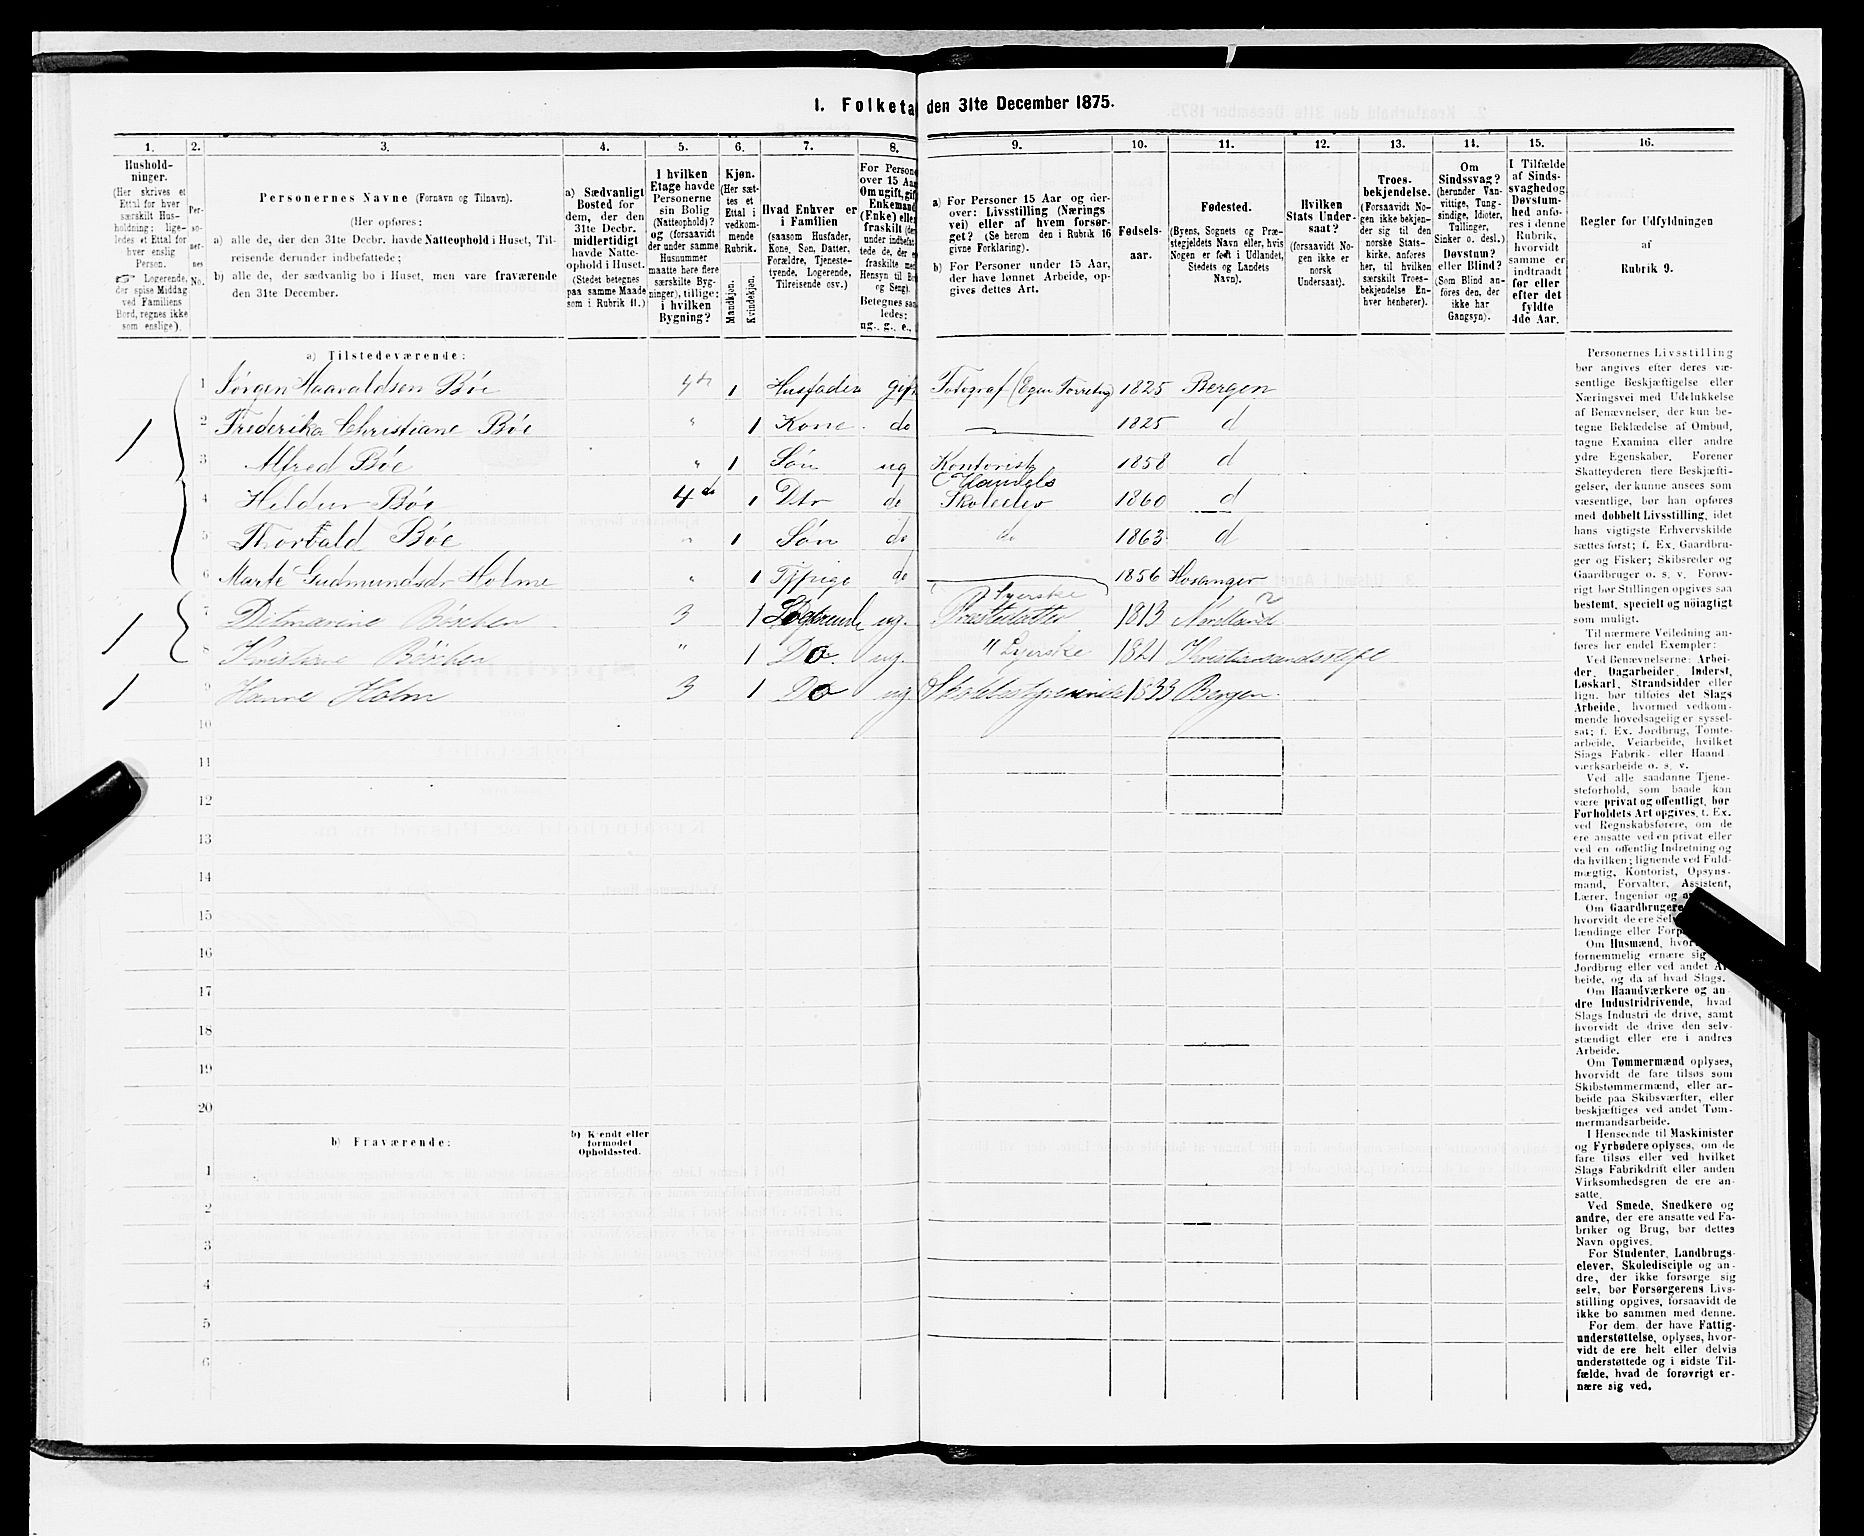 1. Folketal den 31te December 1875.
1. 2. 3. 4. 5. 6. 7. 8. 9. 10. 11. 12. 13. 14. 15. 16.
Husholdninger.
(Her skrives et Ettal for hver særskilt Husholdning; ligeledes et Ettal for hver enslig Person.
☞ Logerende, der spise Middag ved Familiens Bord, regnes ikke som enslige).
Personernes No.
Personernes Navne (Fornavn og Tilnavn).
(Her opføres:
a) alle de, der den 31te Decbr. havde Natteophold i Huset, Tilreisende derunder indbefattede;
b) alle de, der sædvanlig bo i Huset, men vare fraværende den 31te December.
a) Sædvanligt Bosted for dem, der den 31te Decbr. midlertidigt havde Natteophold i Huset.
(Stedet betegnes paa samme Maade som i Rubrik 11.)
I hvilken Etage havde Personerne sin Bolig (Natteophold)? og (forsaavidt der under samme Husnummer maatte høre flere særskilte Bygninger), tillige: i hvilken Bygning?
Kjøn.
(Her sættes et Ettal i vedkommende Rubrik.
Mandkjøn.
Kvindekjøn.
Hvad Enhver er i Familien
(saasom Husfader, Kone, Søn, Datter, Forældre, Tjenestetyende, Logerende, Tilreisende osv.)
For Personer over 15 Aar
Om ugift, gift Enkemand (Enke) eller fraskilt
Betegnes saaledes: ug., g., e.,
a) For Personer 15 Aar og derover: Livsstilling (Næringsvei) eller af hvem forsørget? (Se herom den i Rubrik 16 givne Forklaring).
b) For Personer under 15 Aar, der have lønnet Arbeide, opgives dettes Art.
Fødselsaar.
Fødested.
(Byens, Sognets og Præstegjeldets Navn eller, hvis Nogen er født i Udlandet, Stedets og Landets Navn).
Hvilken Stats Undersaat?
(forsaavidt Nogen ikke er norsk Undersaat).
Troesbekjendelse.
(Forsaavidt Nogen ikke bekjender sig til den norske Statskirke, anføres her, til hvilken særskilt Troesbekjendelse Enhver henhører).
Om Sindssvag? (herunder Vanvittige, Tungsindige, Idioter, Tullinger, Sinker o. desl.) Døvstum? eller Blind? (Som Blind anføres den, der ikke har Gangsyn).
I Tilfælde af Sindssvaghed og Døvstumhed anføres i denne Rubrik, hvorvidt samme er indtraadt før eller efter det fyldte 4de Aar.
Regler for Udfyldningen af Rubrik 9.
a) Tilstedeværende:
1 Jørgen Haavaldsen Bøe 4de 1 Husfader gift Fotograf (Egen Forretng) 1825 Bergen
1 2 Frederika Christiane Bøe " 1 Kone do 1825 d
3 Alfred Bøe " 1 Søn ug Kontorist 1858 d
4 Heldur Bøe 4de 1 Dtr do Handels Skoleelev 1860 d
5 Thorvald Bøe " 1 Søn do do 1863 d
6 Marte Gudmundsdr Holme " 1 Tjpige do 1856 Hosanger
1 7 Ditmarine Børchen 3 1 Logerende ug. Syerske Præstedatter 1813 Nordland
8 Kristiane Børchen " 1 Do. ug. " Syerske 1821 Kristiansandsstift
1 9 Hanne Holm 3 1 Do ug. Skolebestyrerinde 1833 Bergen.
10
11
12
13
14
15
16
17
18
19
20
b) Fraværende:
b) Kjendt eller formodet Opholdssted.
1
2
3
4
5
6
Personernes Livsstilling bør angives efter deres væsentlige Beskjæftigelse eller Næringsvei med Udelukkelse af Benævnelser, der kun betegne Beklædelse af Ombud, tagne Examina eller andre ydre Egenskaber. Forener Skatteyderen flere Beskjæftigelser, der kunne ansees som væsentlige, bør han opføres med dobbelt Livsstilling, idet hans vigtigste Erhvervskilde sættes først; f. Ex. Gaardbruger og Fisker; Skibsreder og Gaardbruger o. s. v. Forøvrigt bør Stillingen opgives saa bestemt, specielt og nøiagtigt som muligt.
Til nærmere Veiledning anføres her endel Exempler:
Ved Benævnelserne: Arbeider, Dagarbeider, Inderst, Løskarl, Strandsidder eller lign. bør tilføies det Slags Arbeide, hvormed vedkommende hovedsagelig er sysselsat; f. Ex. Jordbrug, Tomtearbeide, Veiarbeide, hvilket Slags Fabrik- eller Haandværksarbeide o. s. v.
Ved alle saadanne Tjenesteforhold, som baade kan være privat og offentligt, bør Forholdets Art opgives, f. Ex. ved Regnskabsførere, om de ere ansatte ved en privat eller ved en offentlig Indretning og da hvilken; lignende ved Fuldmægtig, Kontorist, Opsynsmand, Forvalter, Assistent, Lærer, Ingeniør og
Om Gaardbrugere hvorvidt de ere Sel lændinge eller Forp
Om Husmænd, fornemmelig ernære sig Jordbrug eller ved andet Arbeide, og da af hvad Slags.
Om Haandværkere og andre Industridrivende, hvad Slags Industri de drive, samt hvorvidt de drive den selvstændigt eller ere i andres Arbeide.
Om Tømmermænd oplyses, hvorvidt de fare tilsøs som Skibstømmermænd, eller arbeide paa Skibsværfter, eller beskjæftiges ved andet Tømmermandsarbeide.
I Henseende til Maskinister og Fyrbødere oplyses, om de fare tilsøs eller ved hvilket Slags Fabrikdrift eller anden Virksomhedsgren de ere ansatte.
Ved Smede, Snedkere og andre, der ere ansatte ved Fabriker og Brug, bør dettes Navn opgives.
For Studenter, Landbrugselever, Skoledisciple og andre, der ikke forsørge sig selv, bør Forsørgerens Livsstilling opgives, forsaavidt de ikke bo sammen med denne.
For dem, der have Fattigunderstøttelse, oplyses, hvorvidt de ere helt eller delvis understøttede og i sidste Tilfælde, hvad de forøvrigt ernære sig ved.